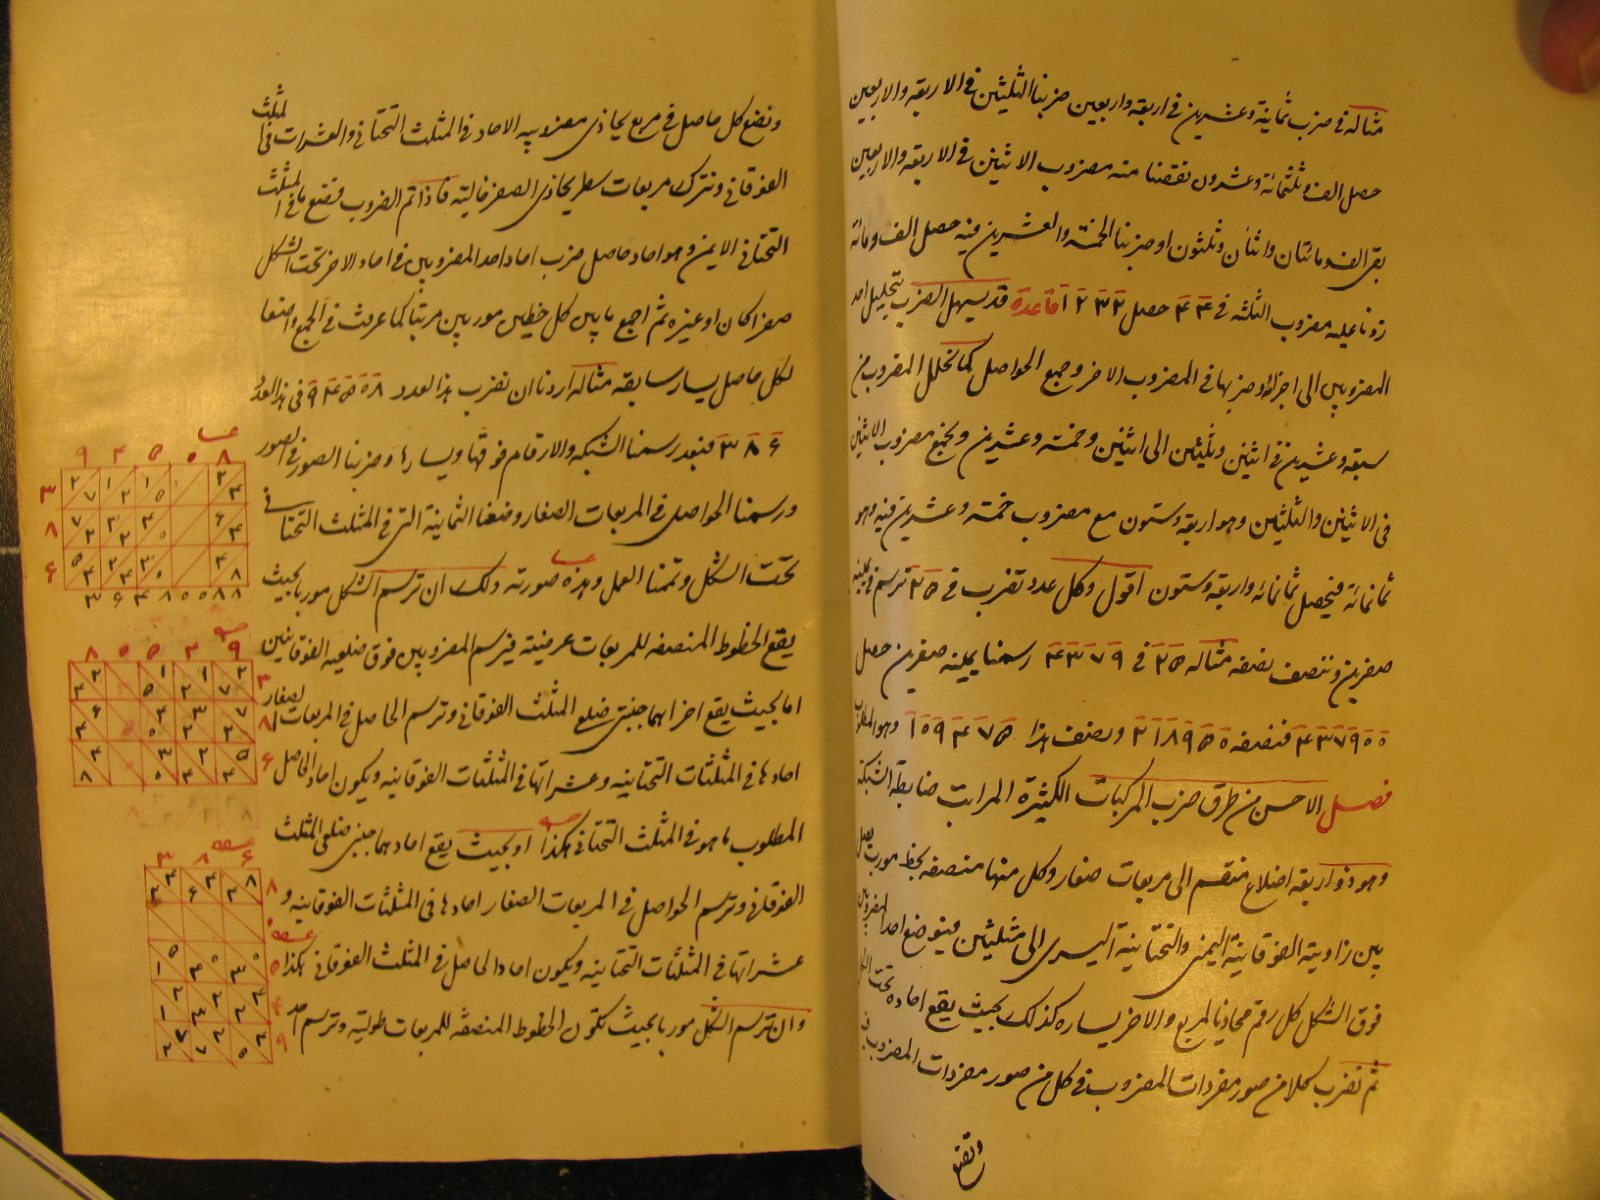 مثاله فى ضرب ثمانية وعشرين فى اربعة واربعين ضربنا الثلثين فى الاربعة والاربعين
حصل الف وثلثمائة وعشرون نقصنا منه مضروب الاثنين فى الاربعة والاربعين
بقى الف ومائتان واثنان وثلثون او ضربنا الخمسة والعشرين فيه حصل الف ومائة
زدنا عليه مضروب الثلثة فى ۴۴ حصل ۱۲۳۲ قاعدة قد يسهل الضرب بتحليل احد
المضروبين الى اجزائه وضربها فى المضروب الاخر وجمع الحواصل كما نحلل المضروب من
سبعة وعشرين فى اثنين وثلثين الى اثنين وخمسة وعشرين ونجمع مضروب الاثنين
فى الاثنين والثلثين وهو اربعة وستون مع مضروب خمسة وعشرين فيه وهو
ثمانمائة فيحصل ثمانمائة واربعة وستون اقول وكل عدد تضرب فى ۲۵ ترسم فى يمينه
صفرين وتنصف نصفه مثاله ۲۵ فى ۴۳۷۹ رسمنا يمينه صفرين حصل
۴۳۷۹۰۰ فنصفه ۲۱۸۹۵۰ ونصف هذا ۱۰۹۴۷۵ وهو المطلوب
فصل الاحسن من طرق ضرب المركبات الكثيرة المراتب ضابطة الشبكة
وهو ذو اربعة اضلاع منقسم الى مربعات صغار وكل منها منصفة بخط مورب يصل
بين زاويته الفوقانية اليمنى والتحتانية اليسرى الى مثلثين فيوضع احد المضروبين
فوق الشكل كل رقم محاذيا لمربع والاخر يساره كذلك بحيث يقع احاده تحت
ثم تضرب كلا من صور مفردات المضروب فى كل من صور مفردات المضروب فيه
وتضع
وتضع كل حاصل فى مربع يحاذى مضروبيه الاحاد فى المثلث التحتانى والعشرات فى المثلث
الفوقانى ونترك مربعات سطر يحاذى الصفر خالية فاذا تم الضروب فتضع ما فى المثلث
التحتانى الايمن وهو احاد حاصل ضرب احاد احد المضروبين فى احاد الاخر تحت الشكل
صفرا كان او غيره ثم اجمع ما بين كل خطين موربين مرتبا كما عرفت فى الجمع واضعا
لكل حاصل يسار سابقه مثاله اردنا ان نضرب هذا العدد ۹۴۵۰۸ فى هذا العدد
۳۸۶ فبعد رسمنا الشبكة والارقام فوقها ويسارها وضربنا الصور فى الصور
ورسمنا الحواصل فى المربعات الصغار وضعنا الثمانية التى فى المثلث التحتانى
تحت الشكل وتممنا العمل وهذه صورته ولك ان ترسم الشكل موربا بحيث
يقع الخطوط المنصفة للمربعات عرضية فيرسم المضروبين فوق ضلعيه الفوقانيين
اما بحيث يقع اخراهما جنبتى ضلع المثلث الفوقانى وترسم الحاصل فى المربعات الصغار
احادها فى المثلثات التحتانية وعشراتها فى المثلثات الفوقانية ويكون احاد الحاصل
المطلوب ما هو فى المثلث التحتانى هكذا او بحيث يقع احادهما جنبى ضلعى المثلث
الفوقانى وترسم الحواصل فى المربعات الصغار احادها فى المثلثات الفوقانية و
عشراتها فى المثلثات التحتانية ويكون احاد الحاصل فى المثلث الفوقانى هكذا
وان ترسم الشكل موربا بحيث تكون الخطوط المنصفة للمربعات طولية وترسم احد
۹ ۴ ۵ ۰ ۸
۳ ۲ ۷ ۱ ۲ ۱ ۵ ۲ ۴
۸ ۷ ۲ ۳ ۲ ۴ ۰ ۶ ۴
۶ ۵ ۴ ۲ ۴ ۳ ۰ ۴ ۸
۳ ۶ ۴ ۸ ۰ ۰ ۸ ۸
۸ ۰ ۵ ۴ ۹
۳
۸
۶
۳ ۸ ۶
۸
۰
۵
۴
۹